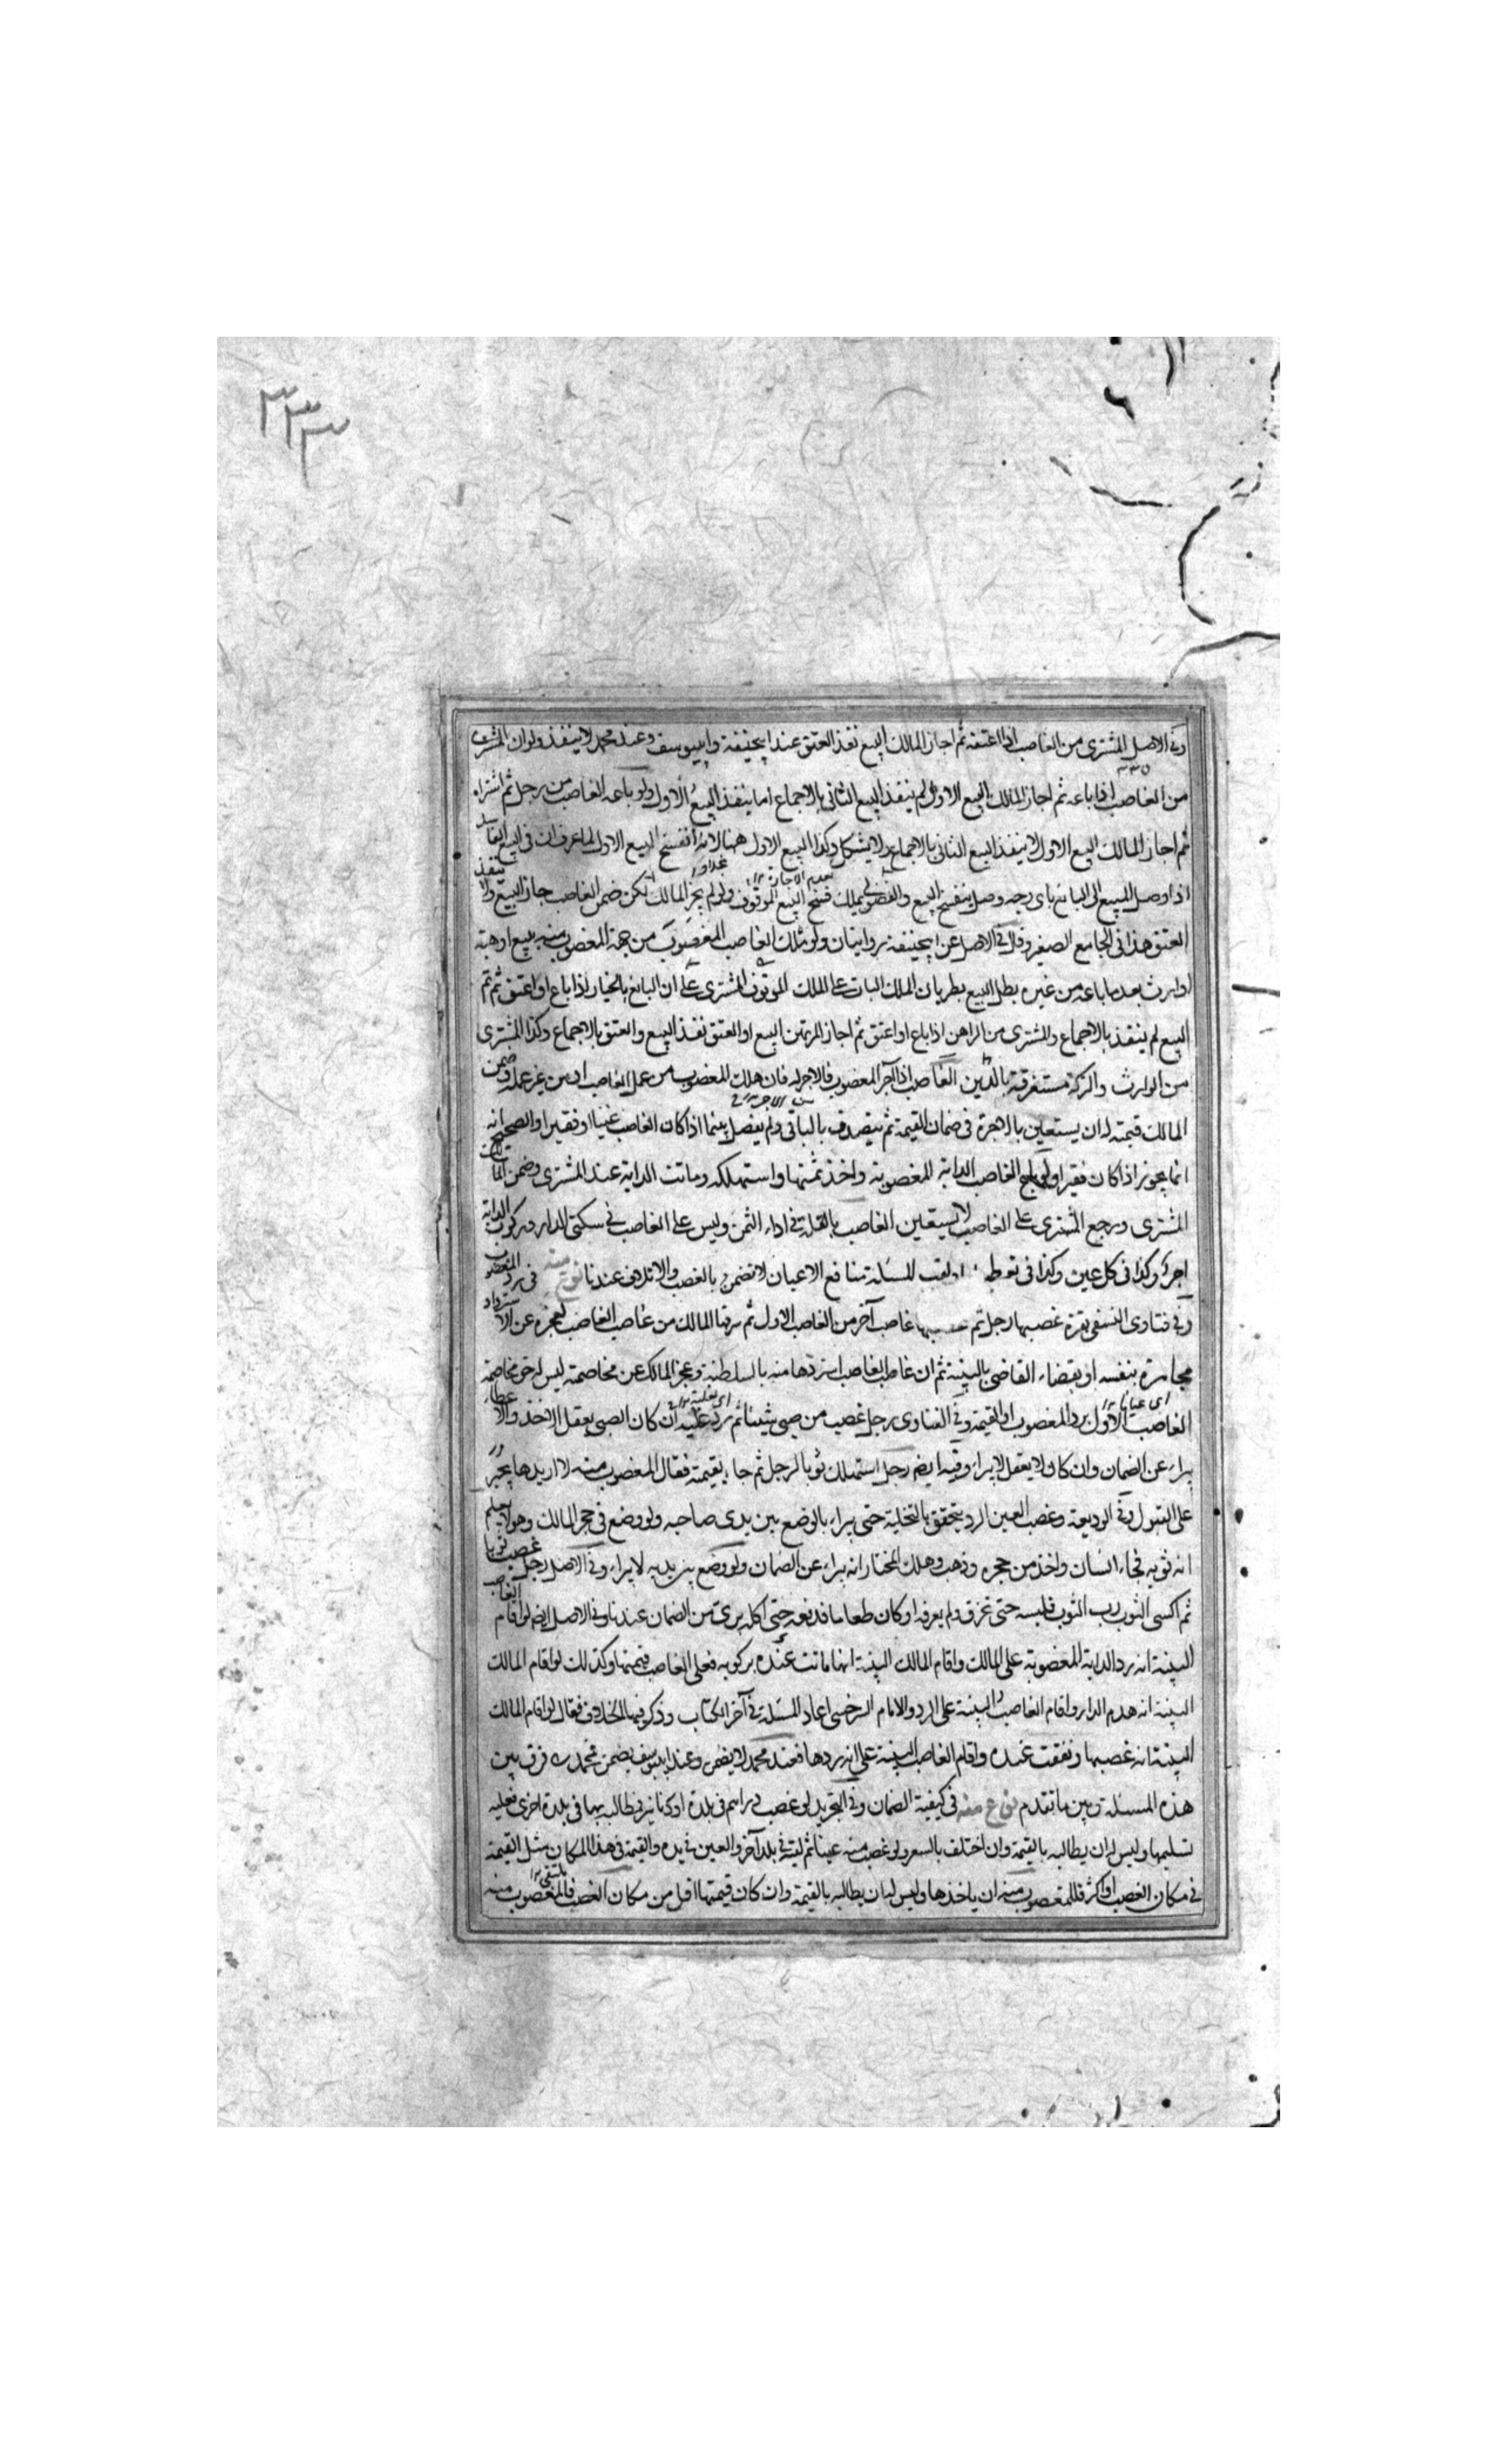 ٣٣٣
وفي الاصل المشتري من الغاصب اذا اعتقه ثم اجاز المالك البيع نفذ العتق عند ابيحنيفة وابييوسف وعند محمد لا ينفذ ولو ان المشتري
من الغاصب اذا باعه ثم اجاز المالك البيع الاول لم ينفذ البيع الثاني بالاجماع اما ينفذ البيع الاول ولو باعه الغاصب من رجل ثم اشتراه
ثم اجاز المالك البيع الاول لا ينفذ البيع الثاني بالاجماع ولا يشكل وكذا البيع الاول ههنا لانه انفسخ البيع الاول لما عرف ان في البيع الفاسد
اذا وصل المبيع الى البائع باي وجه وصل ينفسخ البيع والفضولي يملك فسخ البيع الموقوف ولو لم يجز المالك لكن ضمن الغاصب جاز البيع ولا ينفذ
العتق هذا في الجامع الصغير وقال في الاصل عن ابيحنيفة روايتان ولو ملك الغاصب المغصوب من جهة المغصوب منه ببيع او هبة
او ارث بعد ما باعه من غيره بطل البيع بطريان الملك البات على الملك الموقوف المشتري على ان البائع بالخيار اذا باع او اعتق ثم تم
البيع لم ينفذ بالاجماع والمشتري من الراهن اذا باع او اعتق ثم اجاز المرتهن البيع او العتق نفذ البيع والعتق بالاجماع وكذا المشتري
من الوارث والتركة مستغرقة بالدين الغاصب اذا آجر المغصوب فالاجر له فان هلك المغصوب من عمل الغاصب او من غير عمله وضمن
المالك قيمته له ان يستعين بالاجرة في ضمان القيمة ثم يتصدق بالباقي ولم يفصل بينما اذا كان الغاصب غنيا او فقيرا والصحيح انه
انما يجوز اذا كان فقيرا ولو باع الغاصب الدابة المغصوبة واخذ ثمنها واستهلكه وماتت الدابة عند المشتري وضمن المالك
المشتري ورجع المشتري على الغاصب لا يستعين الغاصب بالغلة في اداء الثمن وليس على الغاصب في سكنى الدار وركوب الدابة
اجر وكذا في كل عين وكذا في لقب المسئلة منافع الاعيان لا تضمن بالغصب والاتلاف عندنا نوع منه في رد المغصوب
وفي فتاوى النسفي بقرة غصبها رجل ثم غاصب آخر من الغاصب الاول ثم سرقها المالك من غاصب الغاصب لعجزه عن الاسترداد
مجاهرة بنفسه او بقضاء القاضي بالبينة ثم ان غاصب الغاصب استردها منه بالسلطنة وعجز المالك عن مخاصمته ليس له حق مخاصمة
الغاصب الاول برد المغصوب او القيمة وفي الفتاوى رجل غصب من صبي شيئا ثم رد عليه ان كان الصبي يعقل الاخذ والاعطاء
يبراء عن الضمان وان كان لا يعقل لا يبراء وفيه ايضم رجل استهلك ثوبا لرجل ثم جاء بقيمته فقال المغصوب منه لا اريدها يجبر
على القبول وفي الوديعة وغصب العين الرد يتحقق بالتخلية حتى يبراء بالوضع بين يدي صاحبه ولو وضع في حجر المالك وهو لا يعلم
انه ثوبه فجاء انسان واخذ من حجره وذهب وهلك المختار انه يبراء عن الضمان ولو وضع بين يديه لا يبراء وفي الاصل رجل غصب ثوبا
ثم اكسى الثوب رب الثوب فلبسه حتى تخرق ولم يعرفه او كان طعاما فدفعه حتى اكله بري من الضمان عندنا وفي الاصل ايضم لو اقام الغاصب
البينة انه رد الدابة المغصوبة على المالك واقام المالك البينة انها ماتت عنده بركوبه فعلى الغاصب قيمتها وكذلك لو اقام المالك
البينة انه هدم الدار واقام الغاصب البينة على الرد والامام السرخسي اعاد المسئلة في آخر الكتاب وذكر فيها الخلاف فقال لو اقام المالك
البينة انه غصبها ونفقت عنده واقام الغاصب البينة على انه ردها فعند محمد لا يضمن وعند ابييوسف يضمن فمحمد رح فرق بين
هذه المسئلة وبين ما تقدم نوع منه في كيفية الضمان وفي التجريد لو غصب دراهم في بلدة او دنانير فطالبه بها في بلدة اخرى فعليه
تسليمها وليس له ان يطالبه بالقيمة وان اختلف بالسعر ولو غصب منه عينا ثم لقيه في بلد آخر والعين في يده والقيمة في هذا المكان مثل القيمة
في مكان الغصب او اكثر فللمغصوب منه ان ياخذها وليس له ان يطالبه بالقيمة وان كان قيمتها اقل من مكان الغصب فالمغصوب منه